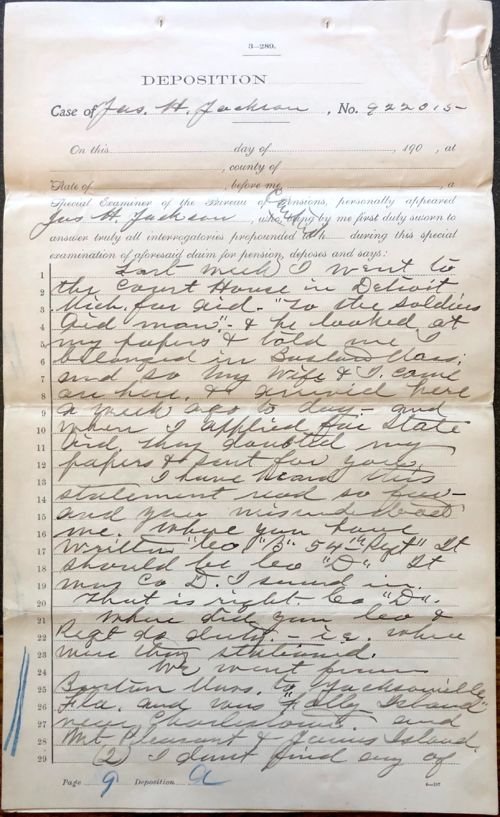 3-289.
DEPOSITION
Case of Jas. H. Jackson, No. 922015
On this day of , 190 , at
, county of
State of , before me, , a
Special Examiner of the Bureau of Pensions, personally appeared
Jas H. Jackson, who, being by me first duly sworn to
answer truly all interrogatories propounded to during this special
examination of aforesaid claim for pension, deposes and says:
1 Last week I went to
2 the Court House in Detroit
3 Mich. for aid. "To the Soldiers
4 Aid man" - & he looked at
5 my papers & told me I
6 belonged in Boston Mass.
7 and so my wife & I come
8 on here. & arrived here
9 a week ago to day - and
10 when I applied for State
11 Aid they doubted my
12 papers & sent for you.
13 I have heard this
14 statement read so far -
15 and you misunderstood
16 me. Where you have
17 written "Co "B" 54th Regt" It
18 should be Co "D" It
19 was Co D. I served in.
20 That is right. Co "D".
21 Where did your Co &
22 Regt do duty - i.e. where
23 were they stationed.
24 We went from
25 Boston Mass. to Jacksonville
26 Fla. and was "Folly Island
27 near Charlestown. and
28 Mt. Pleasant & James Island.
29 (2) I dont find any of
Page 9 Deposition A
6-97